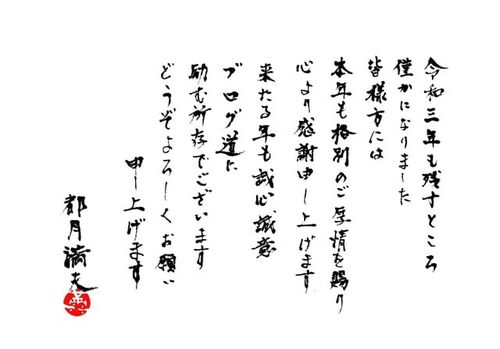 令和三年も残すところ
僅かになりました
皆様方には
本年も格別のご厚情を賜り
心より感謝申し上げます
来たる年も誠心誠意
ブログ道に
励む所存でございます
どうぞよろしくお願い
申し上げます
都月満夫